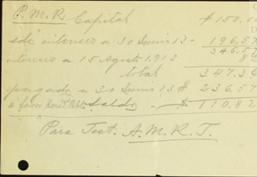 P.M.R. Capital $ 150.00
ede intereses a 30 Junio 12 - 196.57
346.57
intereses a 15 Agosto 1912
total 347.39
pagado a 30 Junio 13 $ 236.57
a favor Saldo - $ 110.82
"Para Test. A.M.R.T.